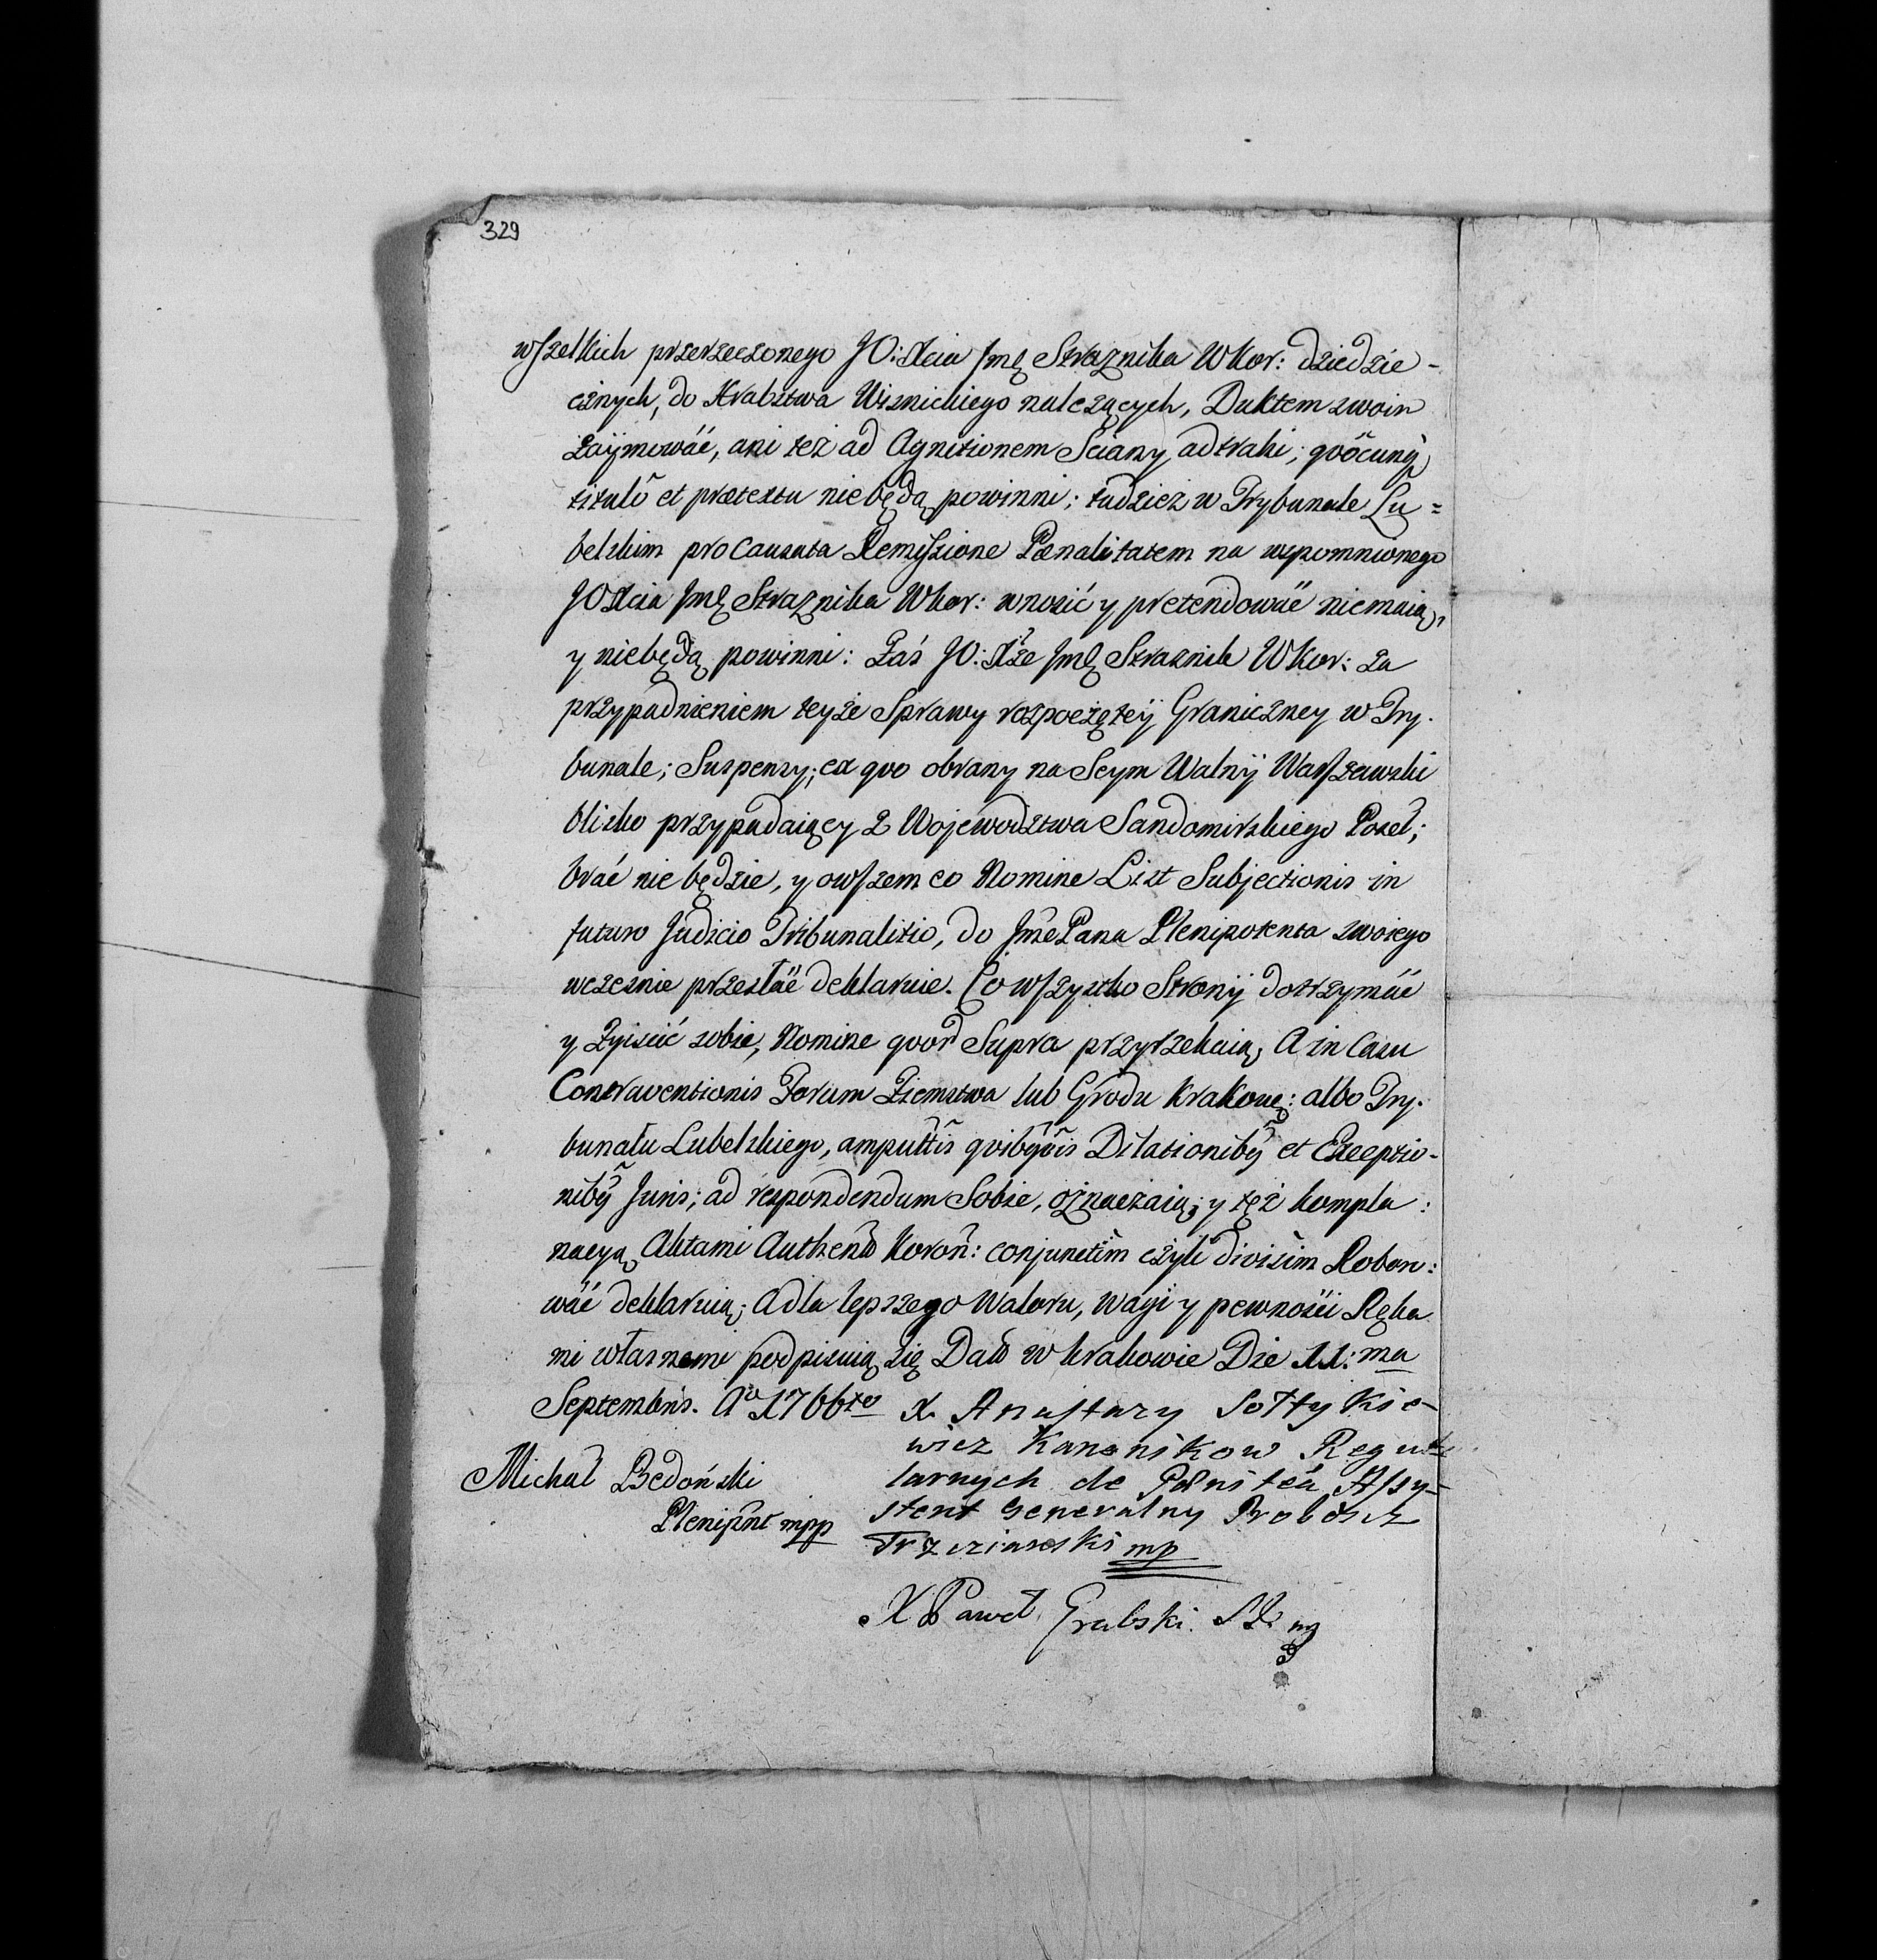 329
wszelkich przerzeczonego JO: Xcia Jmę Straznika WKor: dziedzie-
cznych, do Hrabstwa Wisnickiego nalezących, Duktem swoim
zaÿmowáć, ani tez ad Agnitionem Sciany adtrahi; qvöcunq̃
titulô et prætextu niebędą powinni; tudziez w Trybunale Lu=
belskim pro Causata Remissione Pœnalitatem na wspomnionego
JOXcia Jmę Straznika Wkor: wnosić y pretendowáć niemaią,
y niebędą powinni: Zaś JO: Xże Jmę Straznik WKor: za
przypadnieniem teyże Sprawy rozpoczęteÿ Graniczney w Try-
bunale; Suspensy; ex qvo obrany na Seym Walnÿ Warszawski
blisko przypadaiący z Wojewodztwa Sandomirskiego Poseł;
brać nie będzie, y owszem eo Nomine List Subjectionis in
futuro Judicio Tribunalitio, do Jmć Pana Plenipotenta swoiego
wczesnie przesłać deklaruie. Co wszystko Stronÿ dotrzymáć
y Zyiścić sobie, Nomine qvo Supra przyrzekaią, A in Casu
Contraventionis Forum Ziemstwa lub Grodu Krakowg: albo Try-
bunału Lubelskiego, amputtis qvibq̃vis Dilationibq̃ et Exceptio-
nibq̃ Juris; ad respondendum Sobie, oznaczaią; y tęż kompla:
nacyą Aktami Authen͠ Koroñ: conjunctim czyli divisim Robor:
wáć deklaruią; A dla lepszego Waloru, Wagi y pewności Ręka
mi własnemi podpisuią się Dat͠ w Krakowie Die 11: ma
Septembris. Aº 1766to
X. Anastazy Sołtykie-
wicz Kanonikow Regu-
larnych de Pœnitẽa Assy-
stent Generalny Proboszcz
Trzciański mp
Michał Bedoński
Plenipñt mpp
X Paweł Grabski.